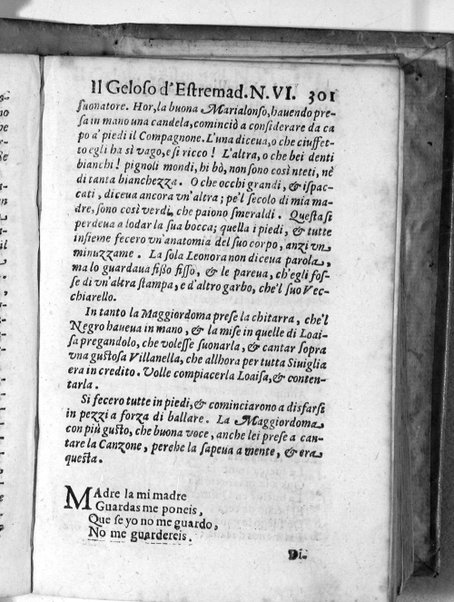 Il Geloso d'Estremad. N. VI. 301
suonatore. Hor, la buona Marialonso, hauendo pre-
sa in mano una candela, cominciò a considerare da ca
po a' piedi il Compagnone. L'una diceua, o che ciuffet-
to egli ha sì vago, e sì ricco! L'altra, o che bei denti
bianchi! pignoli mondi, hi bò, non sono così nteti, nè
di tanta bianchezza. O che occhi grandi, & ispac-
cati, diceua ancora vn'altra; pe'l secolo di mia ma
dre, sono così verdi, che paiono smeraldi. Questa si
perdeua a lodar la sua bocca; quella i piedi, & tutte
insieme fecero vn'anatomia del suo corpo, anzi vn
minuzzame. La sola Leonora non diceua parola,
ma lo guardaua fißo fisso, & le pareua, ch'egli fos-
se di vn'altra stampa, e d'altro garbo, che'l suo Vec-
chiarello.
In tanto la Maggiordoma prese la chitarra, che'l
Negro haueua in mano, & la mise in quelle di Loai-
sa pregandolo, che volesse suonarla, & cantar sopra
vna gustosa Villanella, che allhora per tutta Siuiglia
era in credito. Volle compiacerla Loaisa, & conten-
tarla.
Si fecero tutte in piedi, & cominciarono a disfarsi
in pezzi a forza di ballare. La Maggiordoma
con più gusto, che buona voce, anche lei prese a can-
tare la Canzone, perche la sapeua a mente, & era
questa.
MAdre la mi madre
Guardas me poneis,
Que se yo no me guardo,
No me guardereis.
Di-